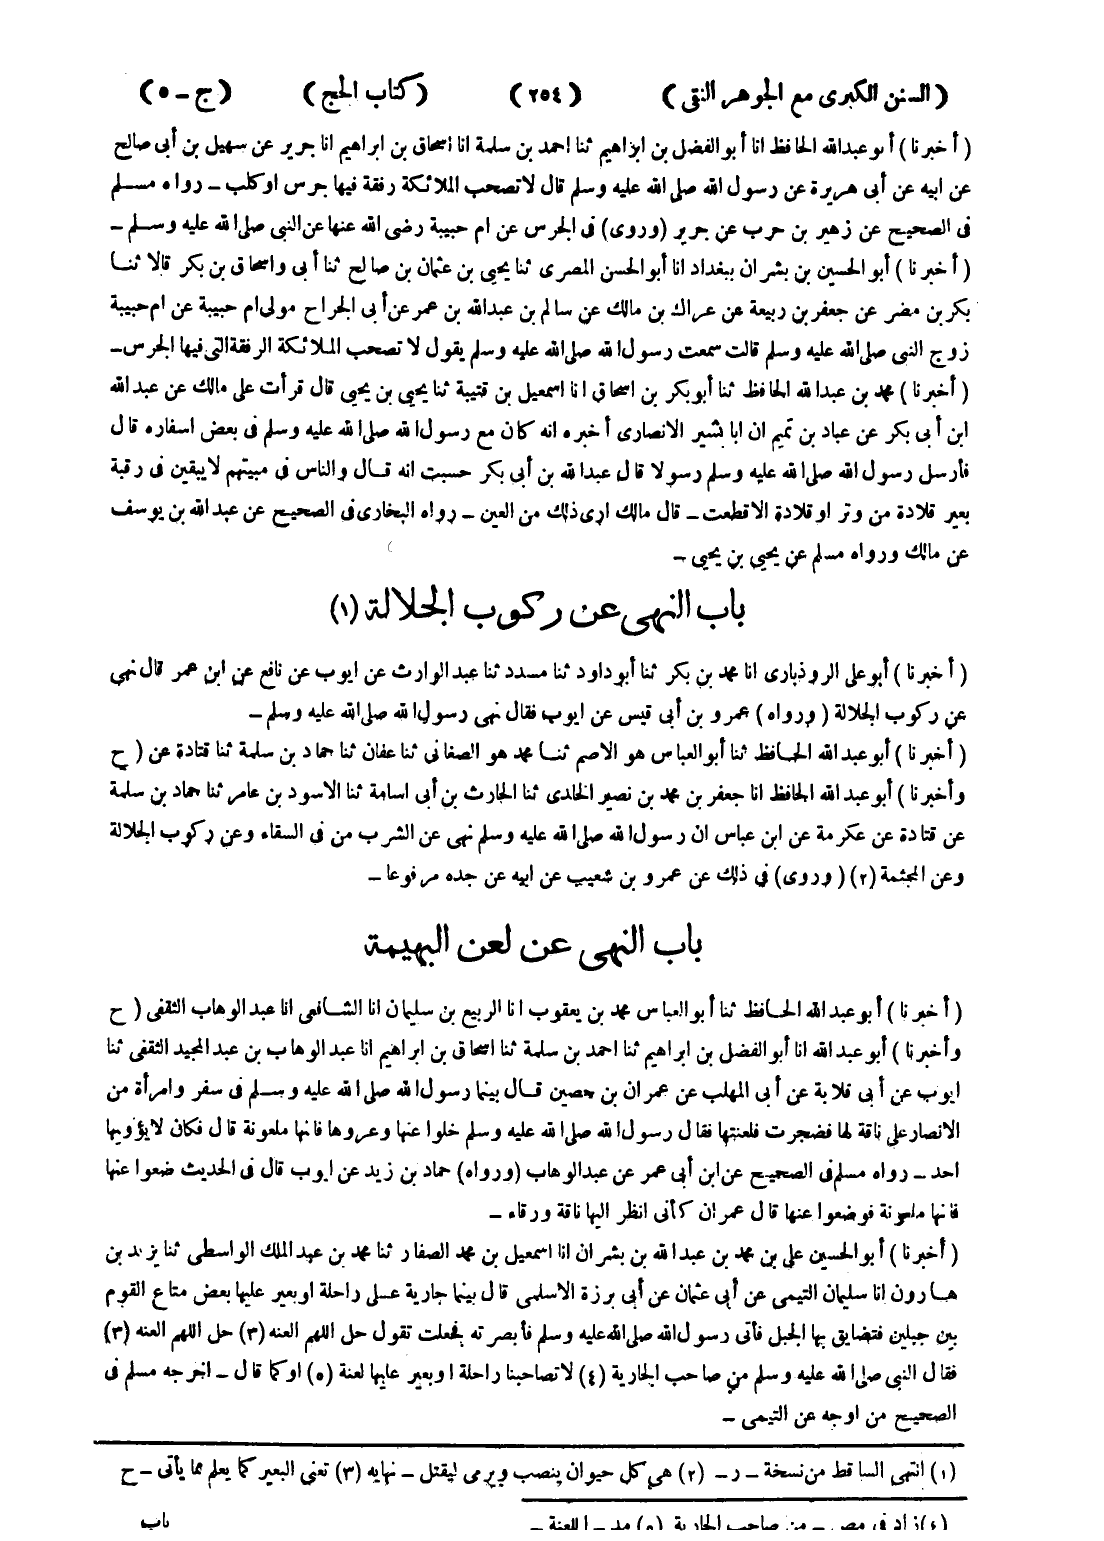 (السنن الكبرى مع الجوهر النقى) (٢٥٤) (كتاب الحج) (ج - ٥)
(أخبرنا) أبو عبدالله الحافظ انا أبو الفضل بن ابراهيم ثنا احمد بن سلمة انا اسحاق بن ابراهيم انا جرير عن سهيل بن أبى صالح
عن ابيه عن أبى هريرة عن رسول الله صلى الله عليه وسلم قال لا تصحب الملائكة رفقة فيها جرس او كلب - رواه مسلم
فى الصحيح عن زهير بن حرب عن جرير (وروى) فى الجرس عن ام حبيبة رضى الله عنها عن النبى صلى الله عليه وسلم -
(أخبرنا) أبو الحسين بن بشران ببغداد انا أبو الحسن المصرى ثنا يحيى بن عثمان بن صالح ثنا أبى واسحاق بن بكر قالا ثنا
بكر بن مضر عن جعفر بن ربيعة عن عراك بن مالك عن سالم بن عبدالله بن عمر عن أبى الجراح مولى ام حبيبة عن ام حبيبة
زوج النبى صلى الله عليه وسلم قالت سمعت رسول الله صلى الله عليه وسلم يقول لا تصحب الملائكة الرفقة التى فيها الجرس -
(أخبرنا) محمد بن عبدالله الحافظ ثنا أبو بكر بن اسحاق انا اسمعيل بن قتيبة ثنا يحيى بن يحيى قال قرأت على مالك عن عبدالله
ابن أبى بكر عن عباد بن تميم ان ابا بشير الانصارى أخبره انه كان مع رسول الله صلى الله عليه وسلم فى بعض اسفاره قال
فأرسل رسول الله صلى الله عليه وسلم رسولا قال عبدالله بن أبى بكر حسبت انه قال والناس فى مبيتهم لا يبقين فى رقبة
بعير قلادة من وتر او قلادة الا قطعت - قال مالك ارى ذلك من العين - رواه البخارى فى الصحيح عن عبدالله بن يوسف
عن مالك ورواه مسلم عن يحيى بن يحيى -
باب النهى عن ركوب الجلالة (١)
(أخبرنا) أبو على الروذبارى انا محمد بن بكر ثنا أبو داود ثنا مسدد ثنا عبد الوارث عن ايوب عن نافع عن ابن عمر قال نهى
عن ركوب الجلالة (ورواه) عمرو بن أبى قيس عن ايوب فقال نهى رسول الله صلى الله عليه وسلم -
(أخبرنا) أبو عبدالله الحافظ ثنا أبو العباس هو الاصم ثنا محمد هو الصغانى ثنا عفان ثنا حماد بن سلمة ثنا قتادة عن (ح
وأخبرنا) أبو عبدالله الحافظ انا جعفر بن محمد بن نصير الخلدى ثنا الحارث بن أبى اسامة ثنا الاسود بن عامر ثنا حماد بن سلمة
عن قتادة عن عكرمة عن ابن عباس ان رسول الله صلى الله عليه وسلم نهى عن الشرب من فى السقاء وعن ركوب الجلالة
وعن المجثمة (٢) (وروى) فى ذلك عن عمرو بن شعيب عن ابيه عن جده مرفوعا -
باب النهى عن لعن البهيمة
(أخبرنا) أبو عبدالله الحافظ ثنا أبو العباس محمد بن يعقوب انا الربيع بن سليمان انا الشافعى انا عبد الوهاب الثقفى (ح
وأخبرنا) أبو عبدالله انا أبو الفضل بن ابراهيم ثنا احمد بن سلمة ثنا اسحاق بن ابراهيم انا عبد الوهاب بن عبد المجيد الثقفى ثنا
ايوب عن أبى قلابة عن أبى المهلب عن عمران بن حصين قال بينما رسول الله صلى الله عليه وسلم فى سفر وامرأة من
الانصار على ناقة لها فضجرت فلعنتها فقال رسول الله صلى الله عليه وسلم خلوا عنها وعروها فانها ملعونة قال فكان لا يؤويها
احد - رواه مسلم فى الصحيح عن ابن أبى عمر عن عبد الوهاب (ورواه) حماد بن زيد عن ايوب قال فى الحديث ضعوا عنها
فانها ملعونة فوضعوا عنها قال عمران كأنى انظر اليها ناقة ورقاء -
(أخبرنا) أبو الحسين على بن محمد بن عبدالله بن بشران انا اسمعيل بن محمد الصفار ثنا محمد بن عبد الملك الواسطى ثنا يزيد بن
هارون انا سليمان التيمى عن أبى عثمان عن أبى برزة الاسلمى قال بينما جارية على راحلة او بعير عليها بعض متاع القوم
بين جبلين فتضايق بها الجبل فأتى رسول الله صلى الله عليه وسلم فأبصرته فجعلت تقول حل اللهم العنه (٣) حل اللهم العنه (٣)
فقال النبى صلى الله عليه وسلم من صاحب الجارية (٤) لا تصاحبنا راحلة او بعير عليها لعنة (٥) او كما قال - اخرجه مسلم فى
الصحيح من اوجه عن التيمى -
(١) انتهى الساقط من نسخة - ر - (٢) هى كل حيوان ينصب ويرمى ليقتل - نهايه (٣) تعنى البعير كما يعلم مما يأتى - ح
(٤) زاد فى مص - من صاحب الجارية (٥) مد - اللعنة -
باب